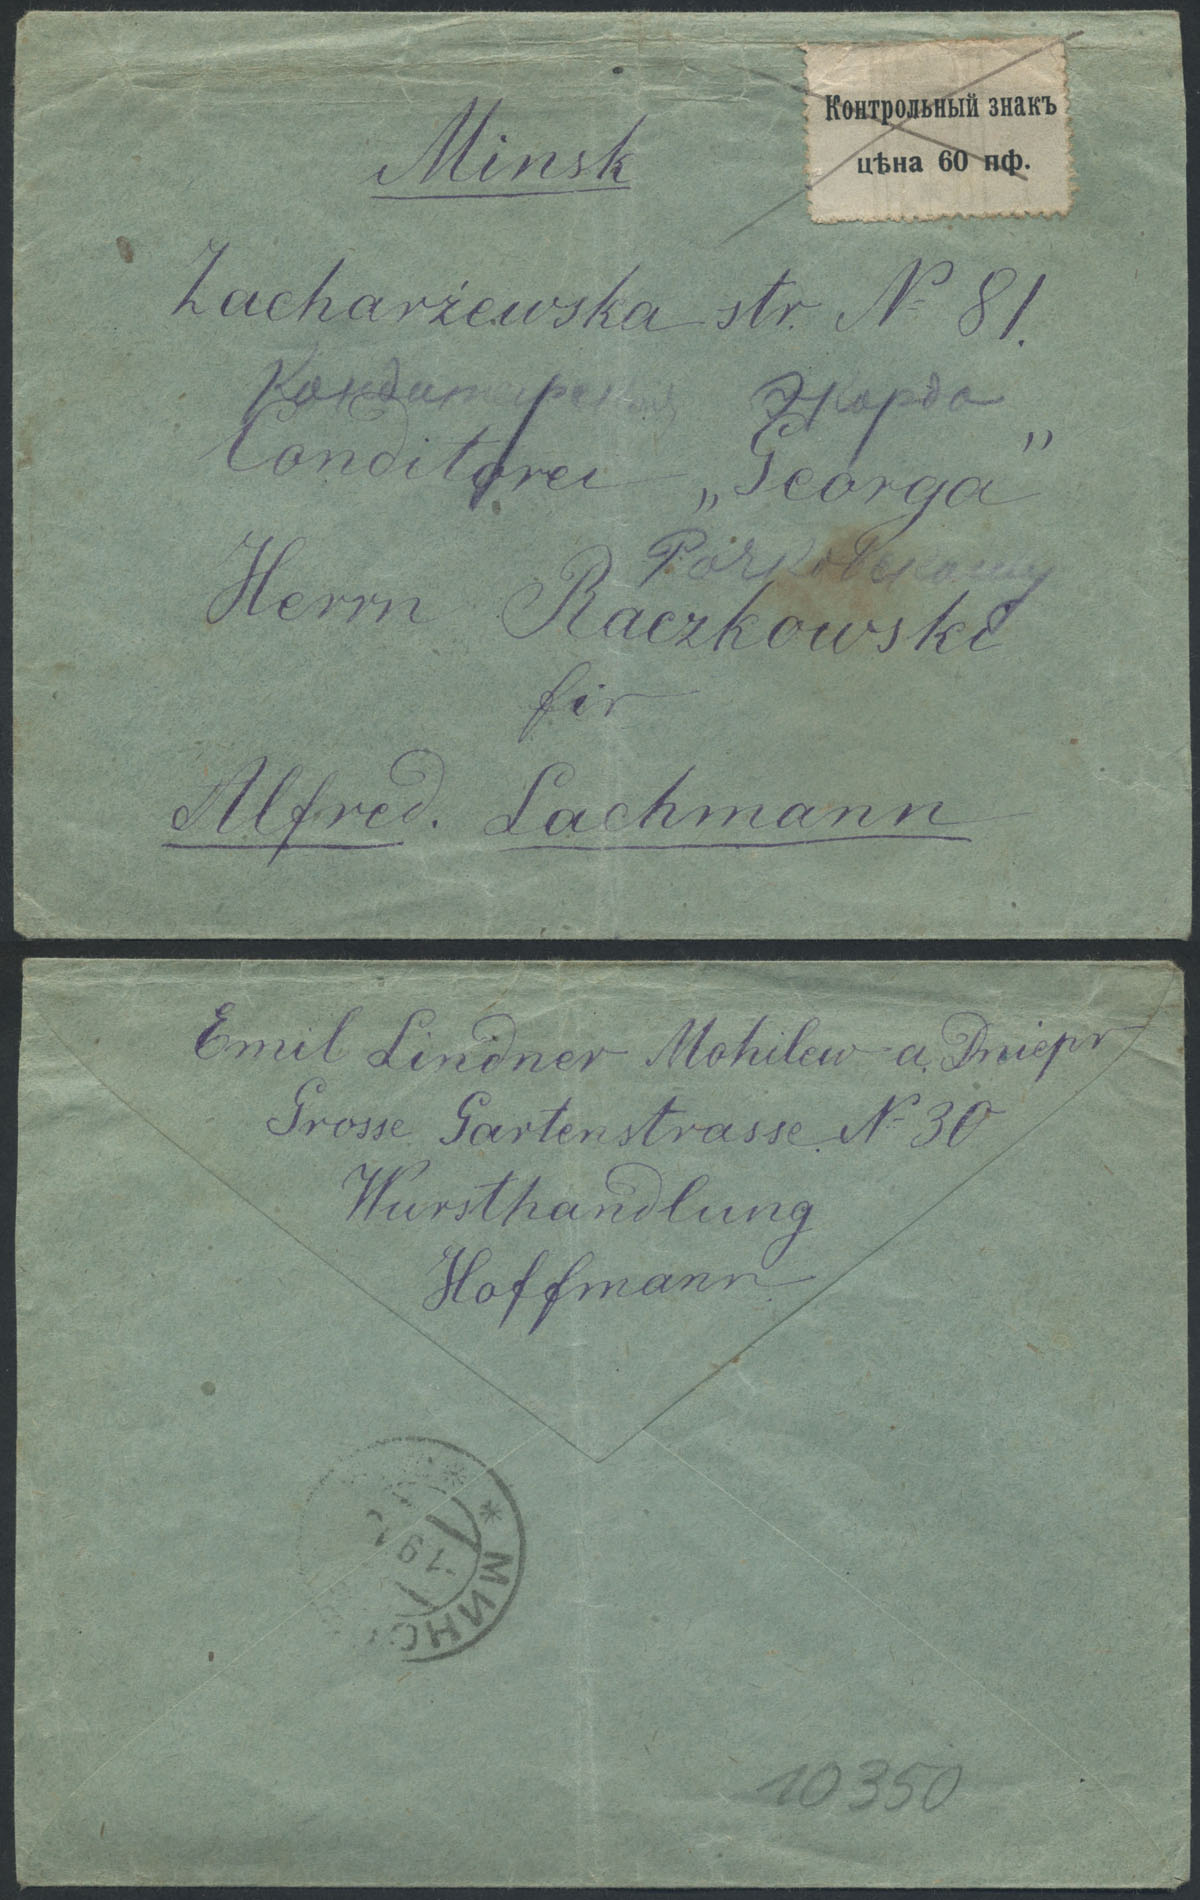 Контрольный знакъ
цѣна 60 пф.
Minsk
Zacharżewska str. № 81.
Кондитерская Жоржа
Conditorei „Georga”
Рачковскому
Herrn Raczkowski
fir
Alfred. Lachmann
Emil Lindner Mohilew a. Dniepr
Grosse Gartenstrasse № 30
Wursthandlung
Hoffmann
* МИНС
191
10350